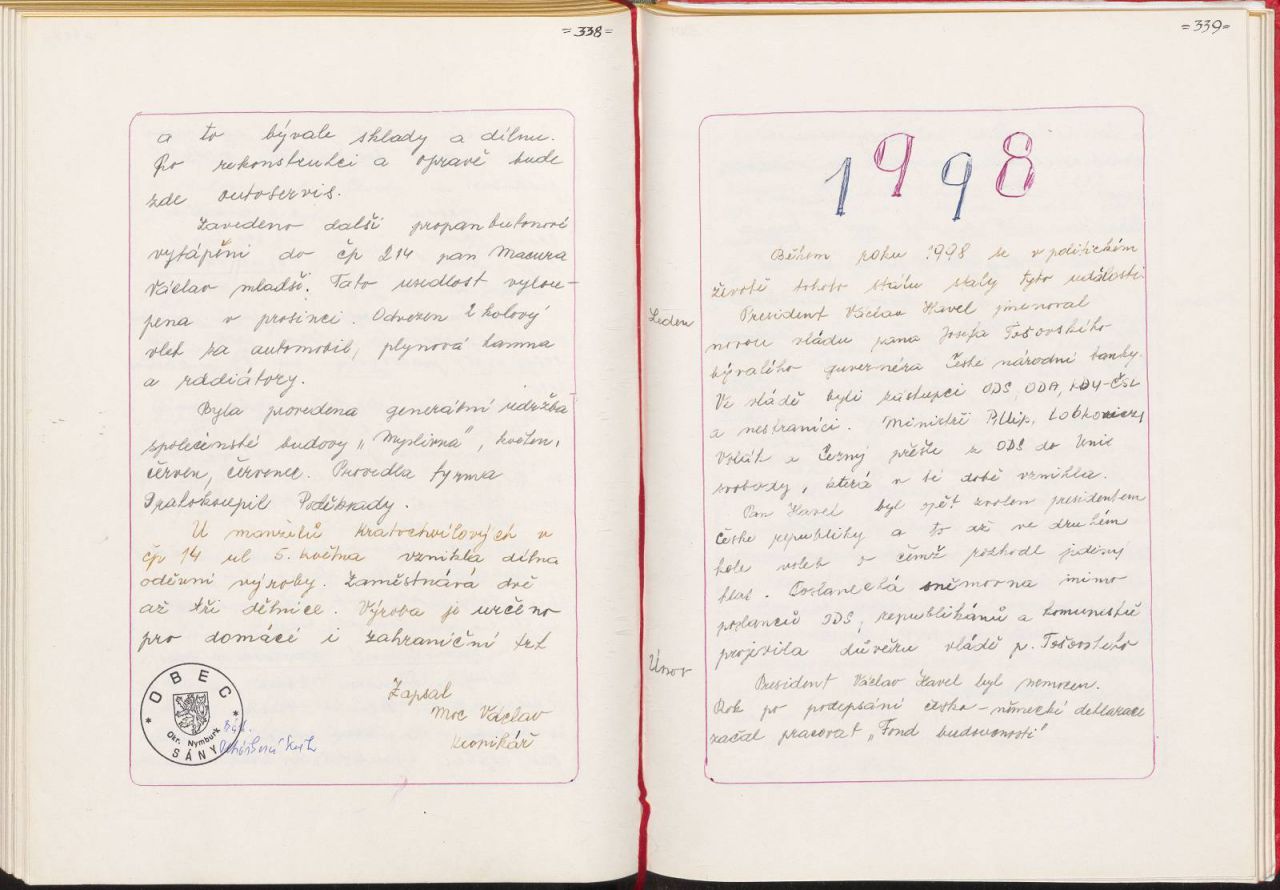 =338=
a to bývale sklady a dílnu.
Po rekonstrukci a opravě bude
zde autoservis.
Zavedeno další propanbutonové
vytápění do čp 214 pan Macura
Václav mladší. Tato usedlost vylou-
pena v prosinci. Odvezen 2 kolový
vlek za automobil, plynová kamna
a radiátory.
Byla provedena generální údržba
společenské budovy „Myslivna", květen,
červen, červenec. Provedla fyrma
Dratokoupil Poděbrady.
U manželů Kratochvílových v
čp 14 ul 5. května vznikla dílna
oděvní výroby. Zaměstnává dvě
až tři dělnice. Výroba je určeno
pro domácí i zahraniční trh
Zapsal
Moc Václav
Kronikář
OBEC
Okr. Nymburk
SÁNY
=339=
1998
Během roku 1998 se v politickém
životě tohoto státu staly tyto události
Leden
President Václav Havel jmenoval
novou vládu pana Josefa Tošovského
bývalého guvernéra České národní banky.
Ve vládě byli zástupci ODS, ODA, KDU-ČSL
a nestraníci. Ministři Pilip, Lobkovicz,
Volák a Černý přešli z ODS do Unie
svobody, která v té době vznikla.
Pan Havel byl opět zvolen presidentem
České republiky a to až ve druhém
kole voleb o čemž rozhodl jediný
hlas. Poslanecká sněmovna mimo
poslanců ODS, republikánů a komunistů
projevila důvěru vládě p. Tošovského
Únor
President Václav Havel byl nemocen.
Rok po podepsání česko-německé deklarace
začal pracovat „Fond budoucnosti"